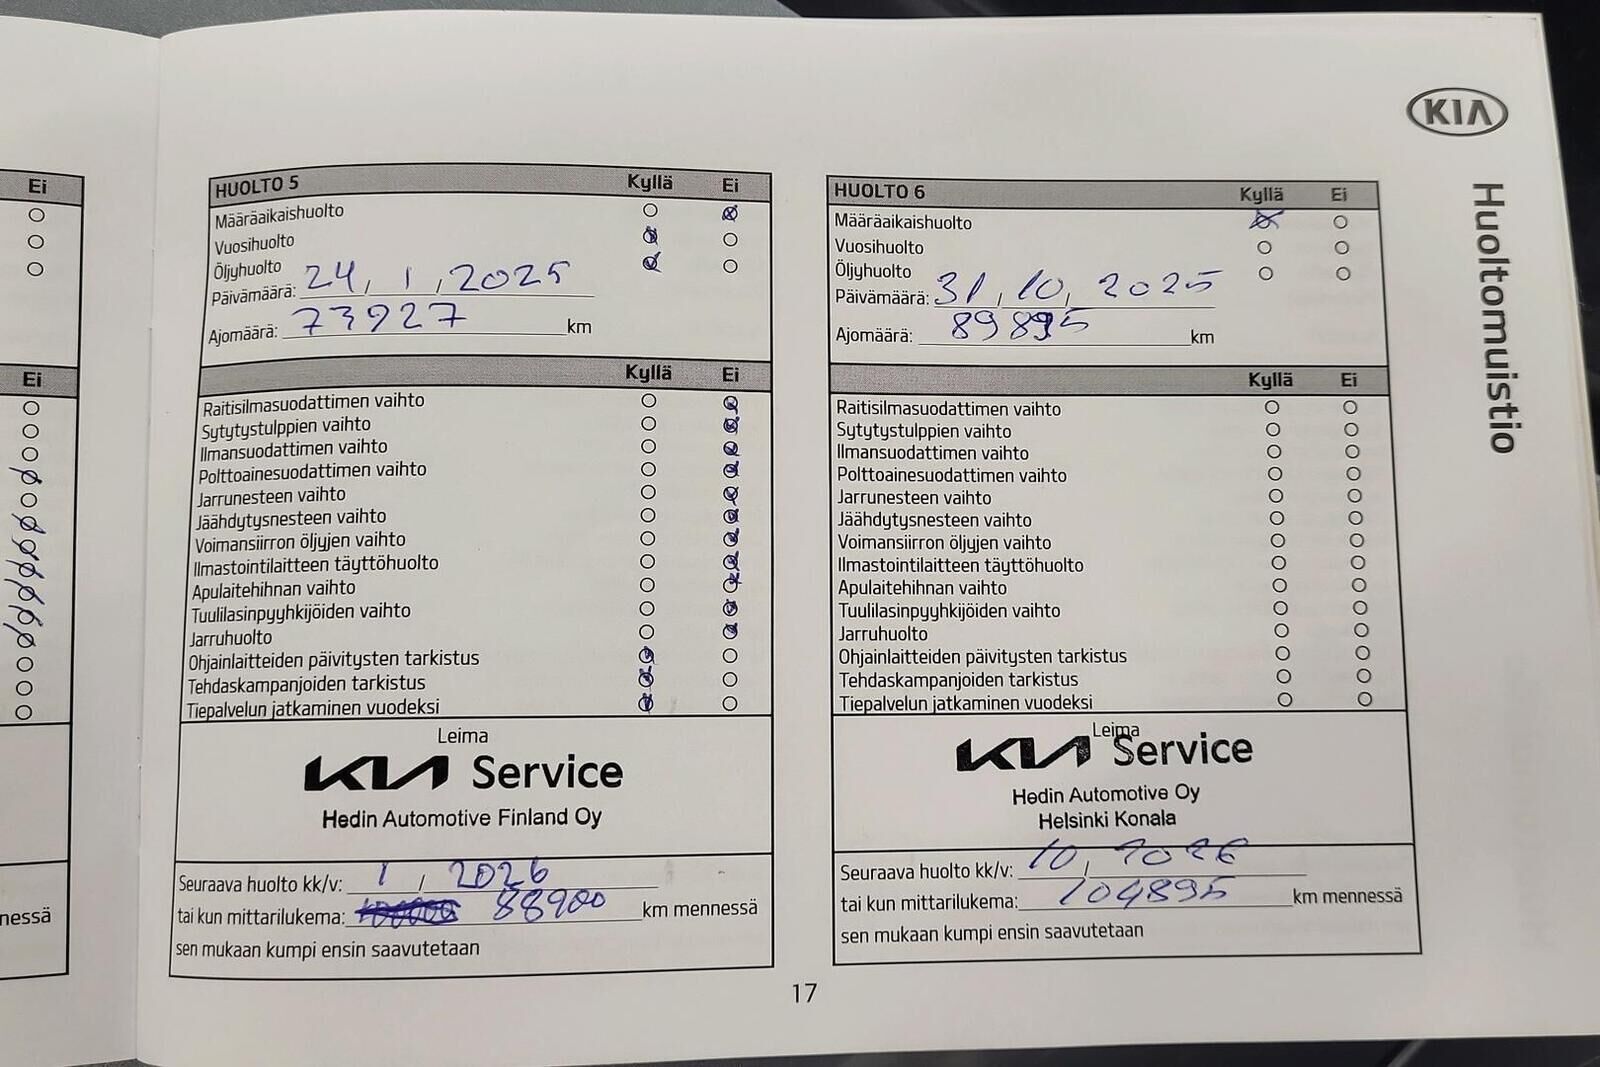 Ei
Ei
nessä
HUOLTO 5 Kyllä Ei
Määräaikaishuolto
Vuosihuolto
Öljyhuolto
Päivämäärä: 24, 1, 2025
Ajomäärä: 73927 km
Kyllä Ei
Raitisilmasuodattimen vaihto
Sytytystulppien vaihto
Ilmansuodattimen vaihto
Polttoainesuodattimen vaihto
Jarrunesteen vaihto
Jäähdytysnesteen vaihto
Voimansiirron öljyjen vaihto
Ilmastointilaitteen täyttöhuolto
Apulaitehihnan vaihto
Tuulilasinpyyhkijöiden vaihto
Jarruhuolto
Ohjainlaitteiden päivitysten tarkistus
Tehdaskampanjoiden tarkistus
Tiepalvelun jatkaminen vuodeksi
Leima
KIA Service
Hedin Automotive Finland Oy
Seuraava huolto kk/v: 1 / 2026
tai kun mittarilukema: 88900 km mennessä
sen mukaan kumpi ensin saavutetaan
HUOLTO 6 Kyllä Ei
Määräaikaishuolto
Vuosihuolto
Öljyhuolto
Päivämäärä: 31, 10, 2025
Ajomäärä: 89895 km
Kyllä Ei
Raitisilmasuodattimen vaihto
Sytytystulppien vaihto
Ilmansuodattimen vaihto
Polttoainesuodattimen vaihto
Jarrunesteen vaihto
Jäähdytysnesteen vaihto
Voimansiirron öljyjen vaihto
Ilmastointilaitteen täyttöhuolto
Apulaitehihnan vaihto
Tuulilasinpyyhkijöiden vaihto
Jarruhuolto
Ohjainlaitteiden päivitysten tarkistus
Tehdaskampanjoiden tarkistus
Tiepalvelun jatkaminen vuodeksi
Leima
KIA Service
Hedin Automotive Oy
Helsinki Konala
Seuraava huolto kk/v: 10 / 2026
tai kun mittarilukema: 104895 km mennessä
sen mukaan kumpi ensin saavutetaan
17
KIA
Huoltomuistio